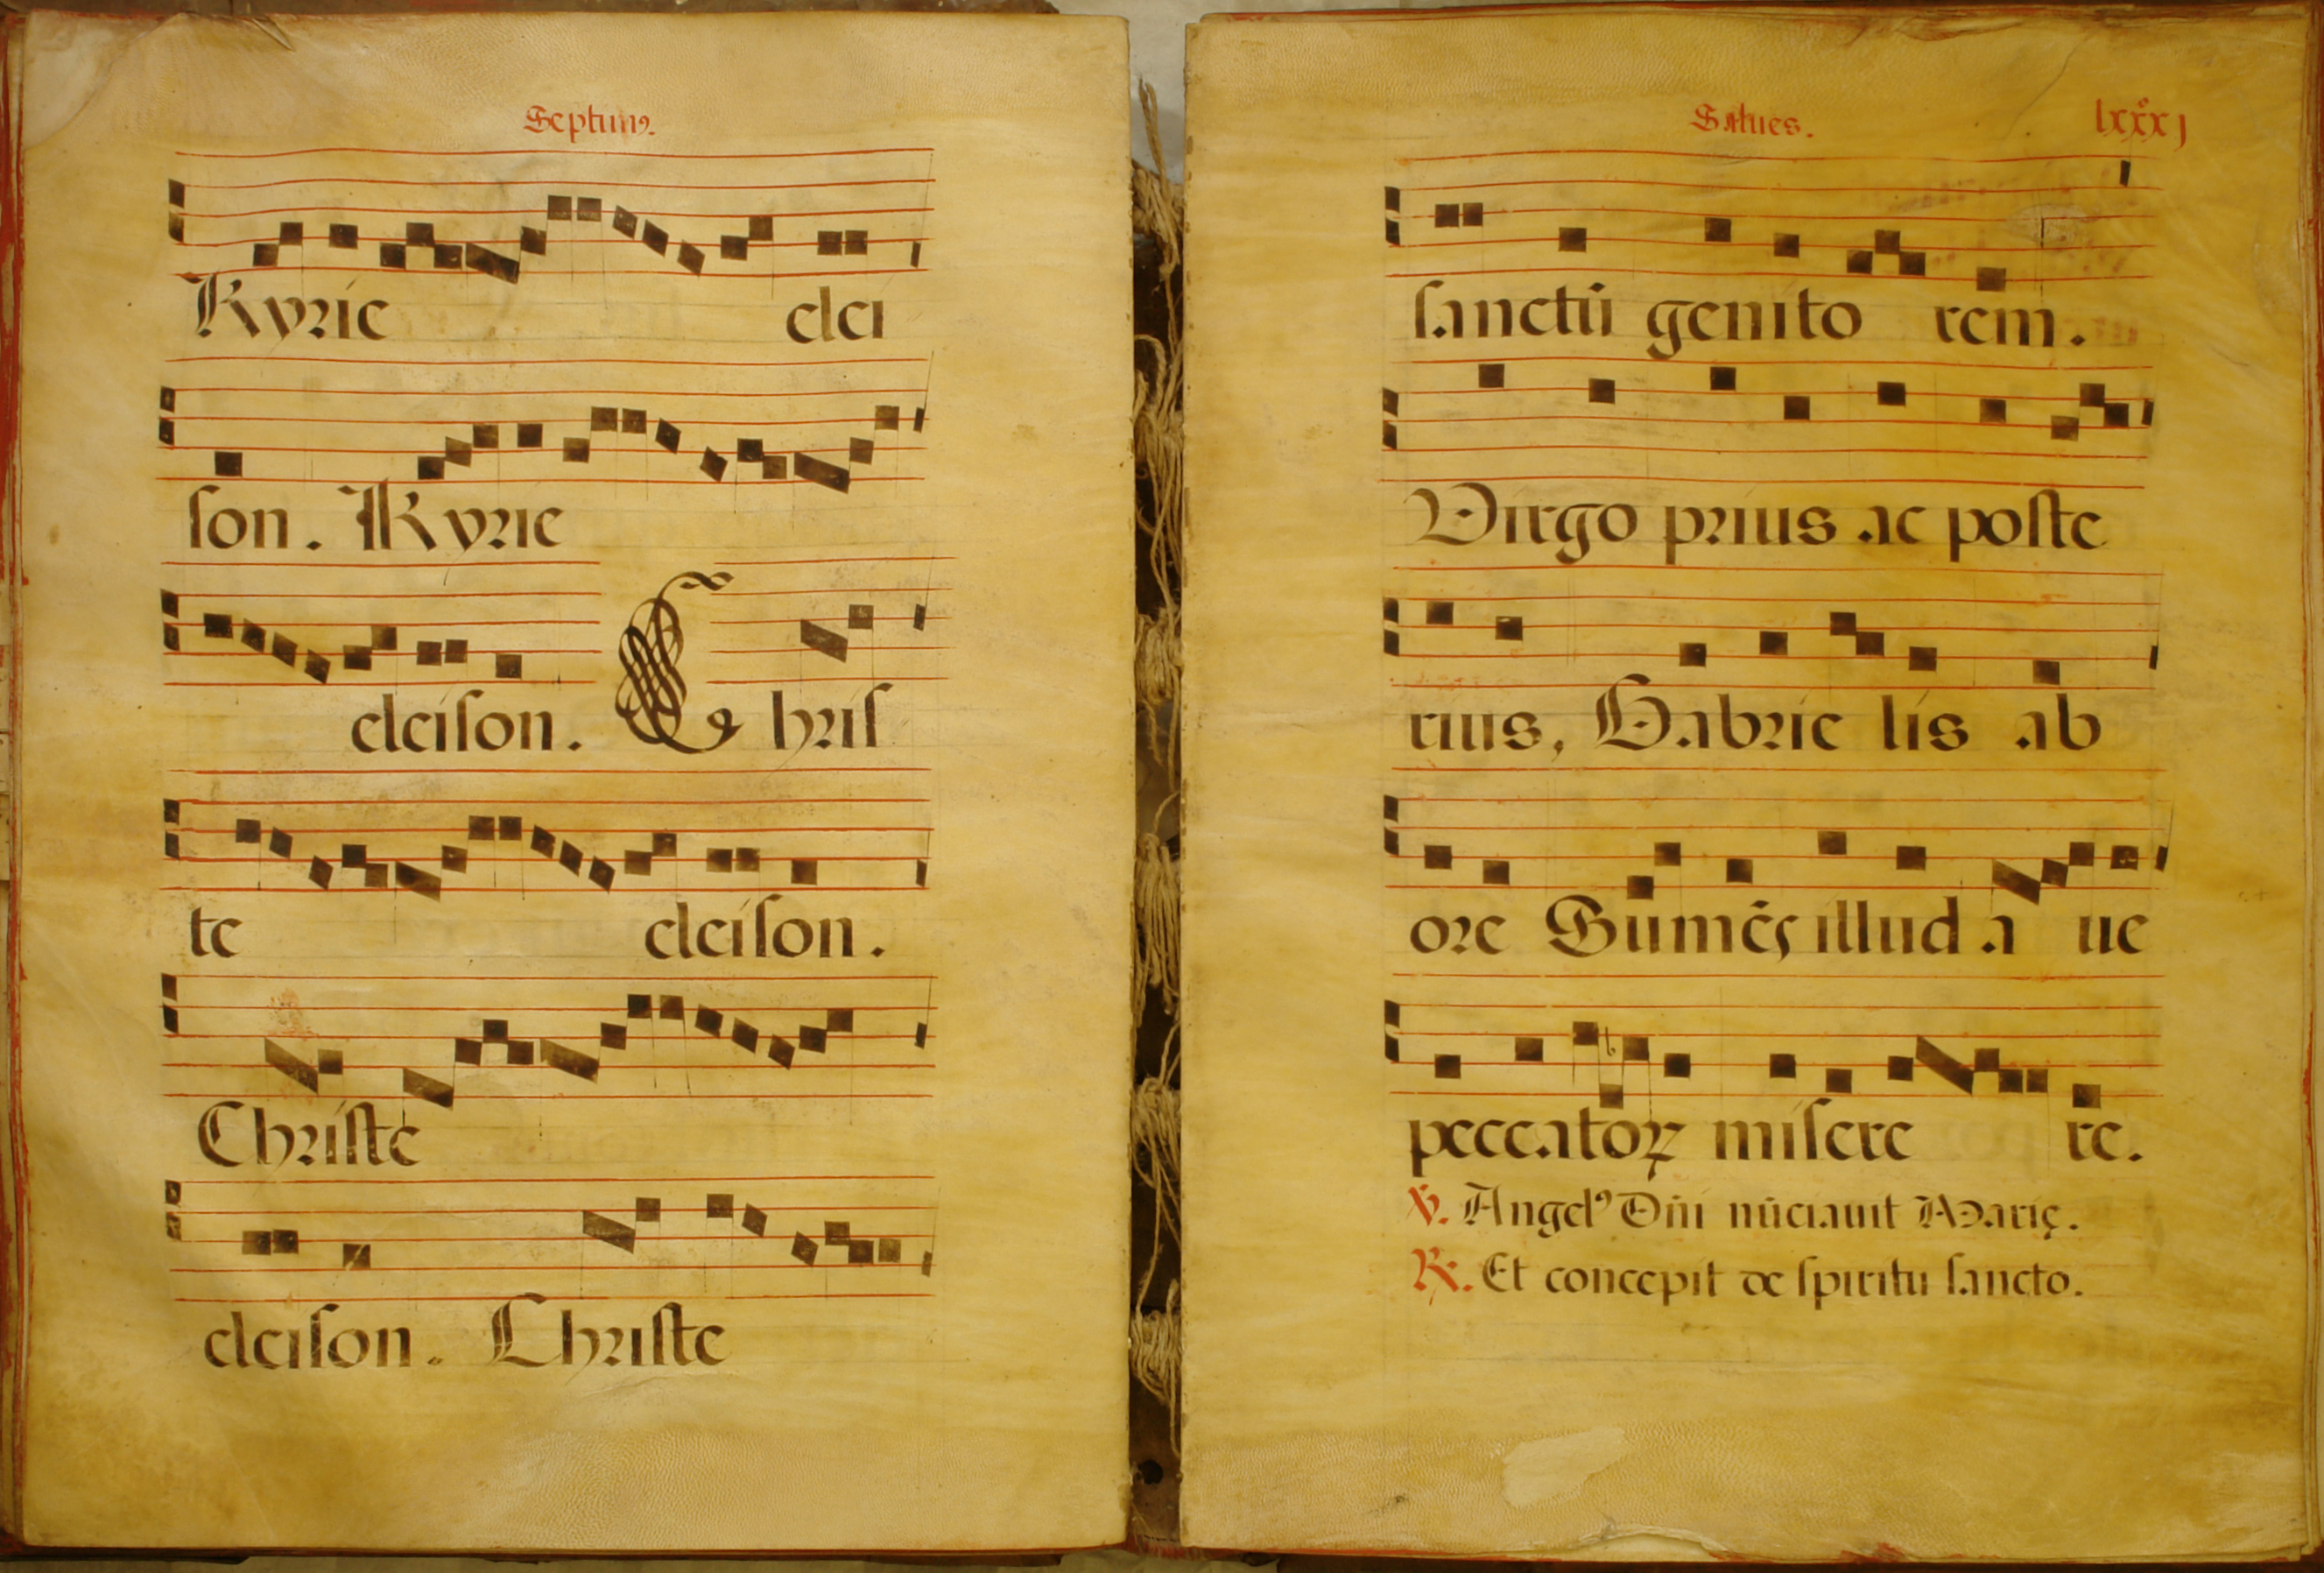 Septimꝰ.
Kyrie elei
ſon. Kyrie
eleiſon. Chriſ
te eleiſon.
Chriſte
eleiſon. Chriſte
Salues. lxxxj
ſanctū genito rem.
Virgo prius ac poſte
rius, Gabrie lis ab
ore Sumēs illud a ue
peccatoꝝ miſere re.
℣. Angelꝰ Dn̄i nūciauit Marię.
℟. Et concepit de ſpiritu ſancto.